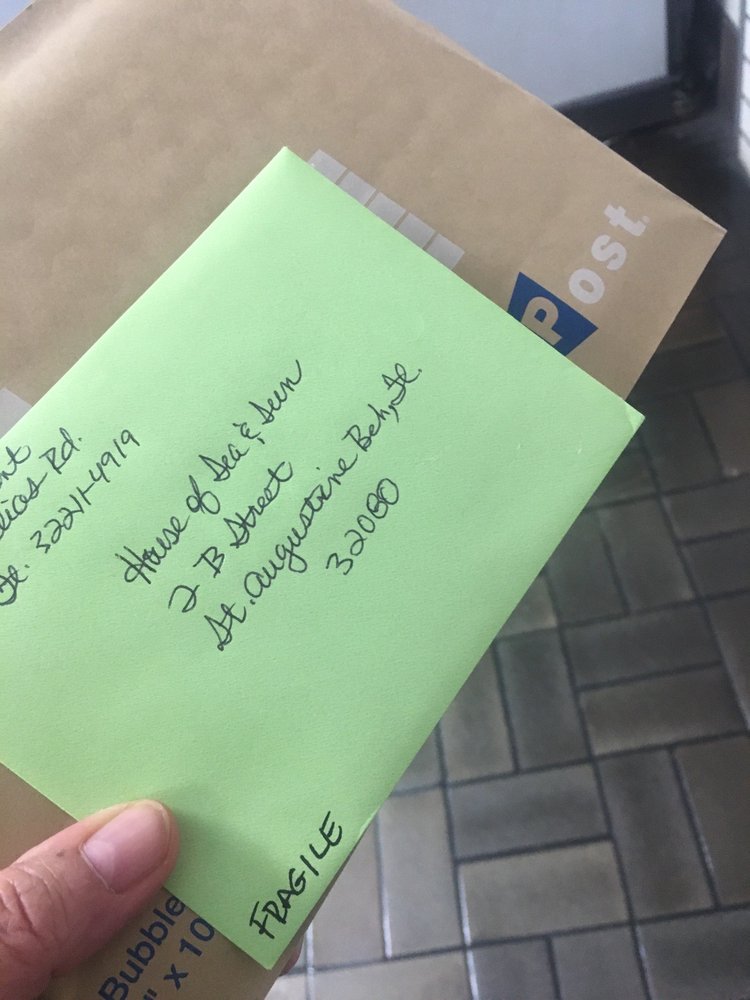 Post
nt
Rd.
Fl. 32211-4919
House of Sea & Sun
2 B Street
St. Augustine Bch, Fl.
32080
FRAGILE
Bubble
" x 10